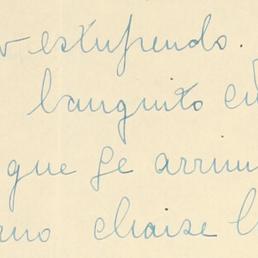 estupendo.
banquito
que se arrim
chaise l